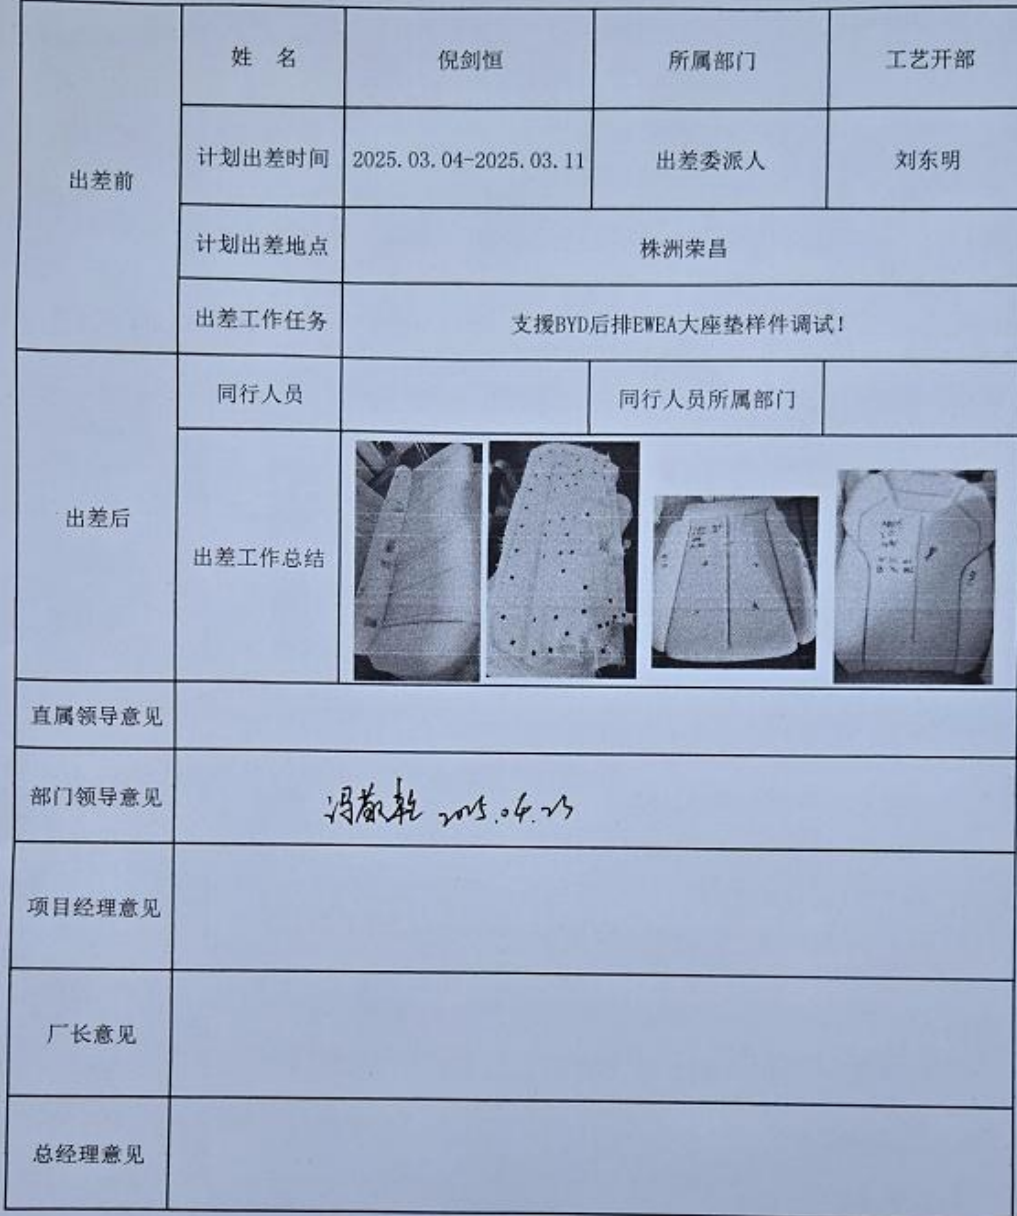 姓 名 倪剑恒 所属部门 工艺开部
出差前
计划出差时间 2025.03.04-2025.03.11 出差委派人 刘东明
计划出差地点 株洲荣昌
出差工作任务 支援BYD后排EWEA大座垫样件调试!
出差后
同行人员 同行人员所属部门
出差工作总结
直属领导意见
部门领导意见 冯敬乾 2025.04.23
项目经理意见
厂长意见
总经理意见